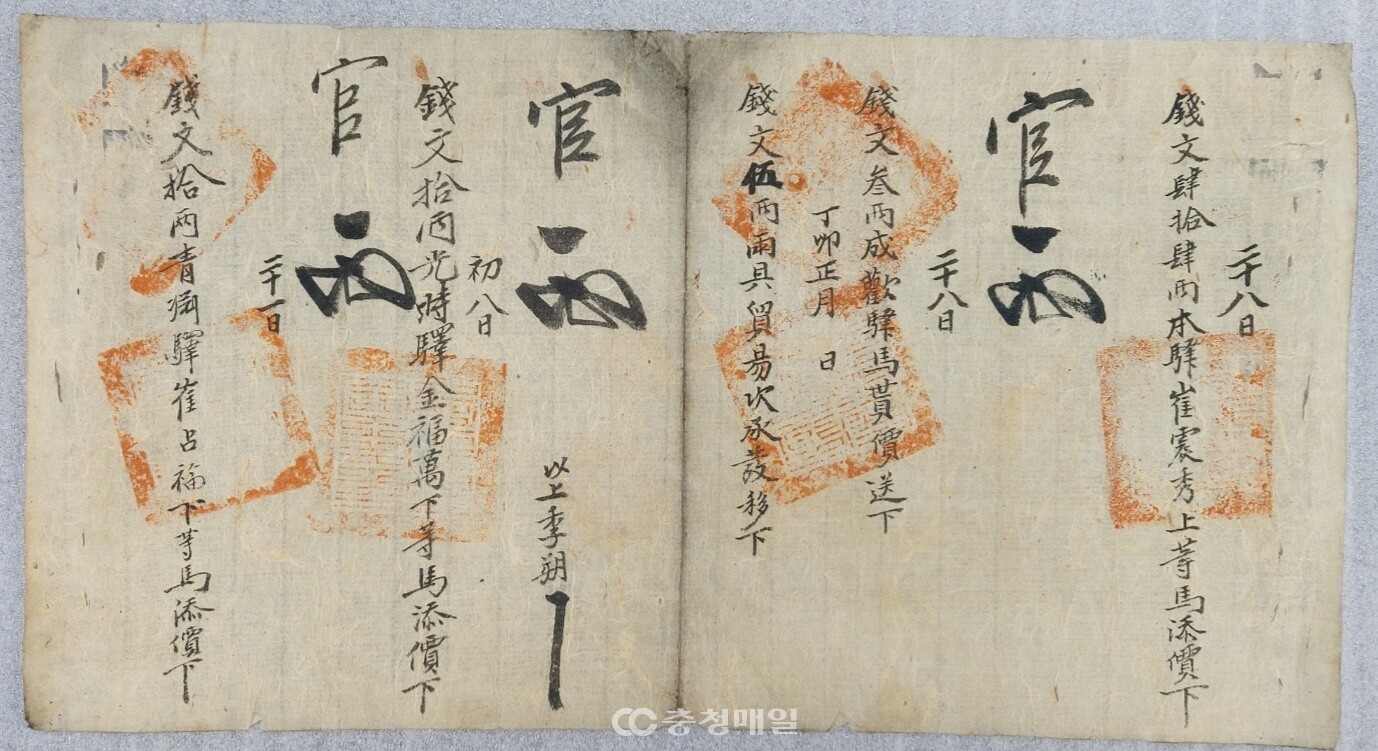 二十八日
錢文肆拾肆兩本驛崔震秀上等馬添價下
官
二十八日
錢文叁兩成歡驛馬貰價送下
丁卯正月 日
錢文伍兩雨具貿易次承發移下
官
以上季朔
初八日
錢文拾兩光時驛金福萬下等馬添價下
官
二十一日
錢文拾兩靑淵驛崔占福下等馬添價下
CC충청매일